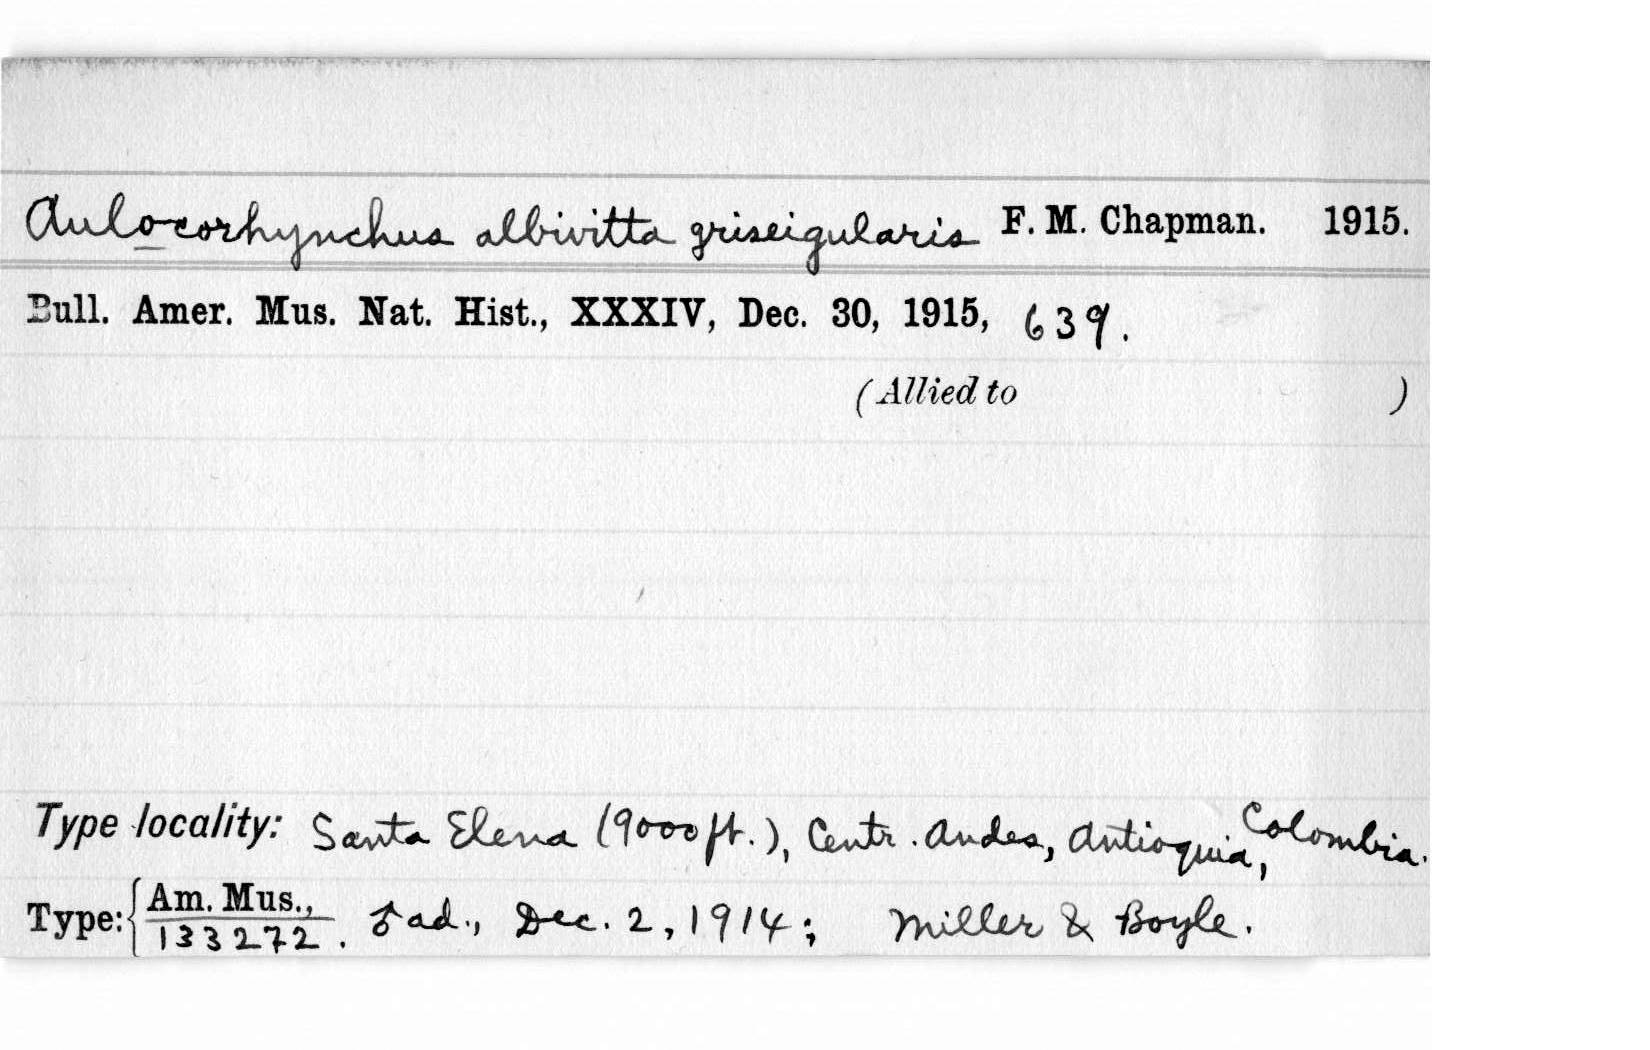 Aulocorhynchus albivitta griseigularis F. M. Chapman. 1915.
Bull. Amer. Mus. Nat. Hist., XXXIV, Dec. 30, 1915, 639.
(Allied to )
Type locality: Santa Elena (9000 ft.), Centr. Andes, Antioquia, Colombia.
Type: { Am. Mus.,
133272. ♂ ad., Dec. 2, 1914; Miller & Boyle.